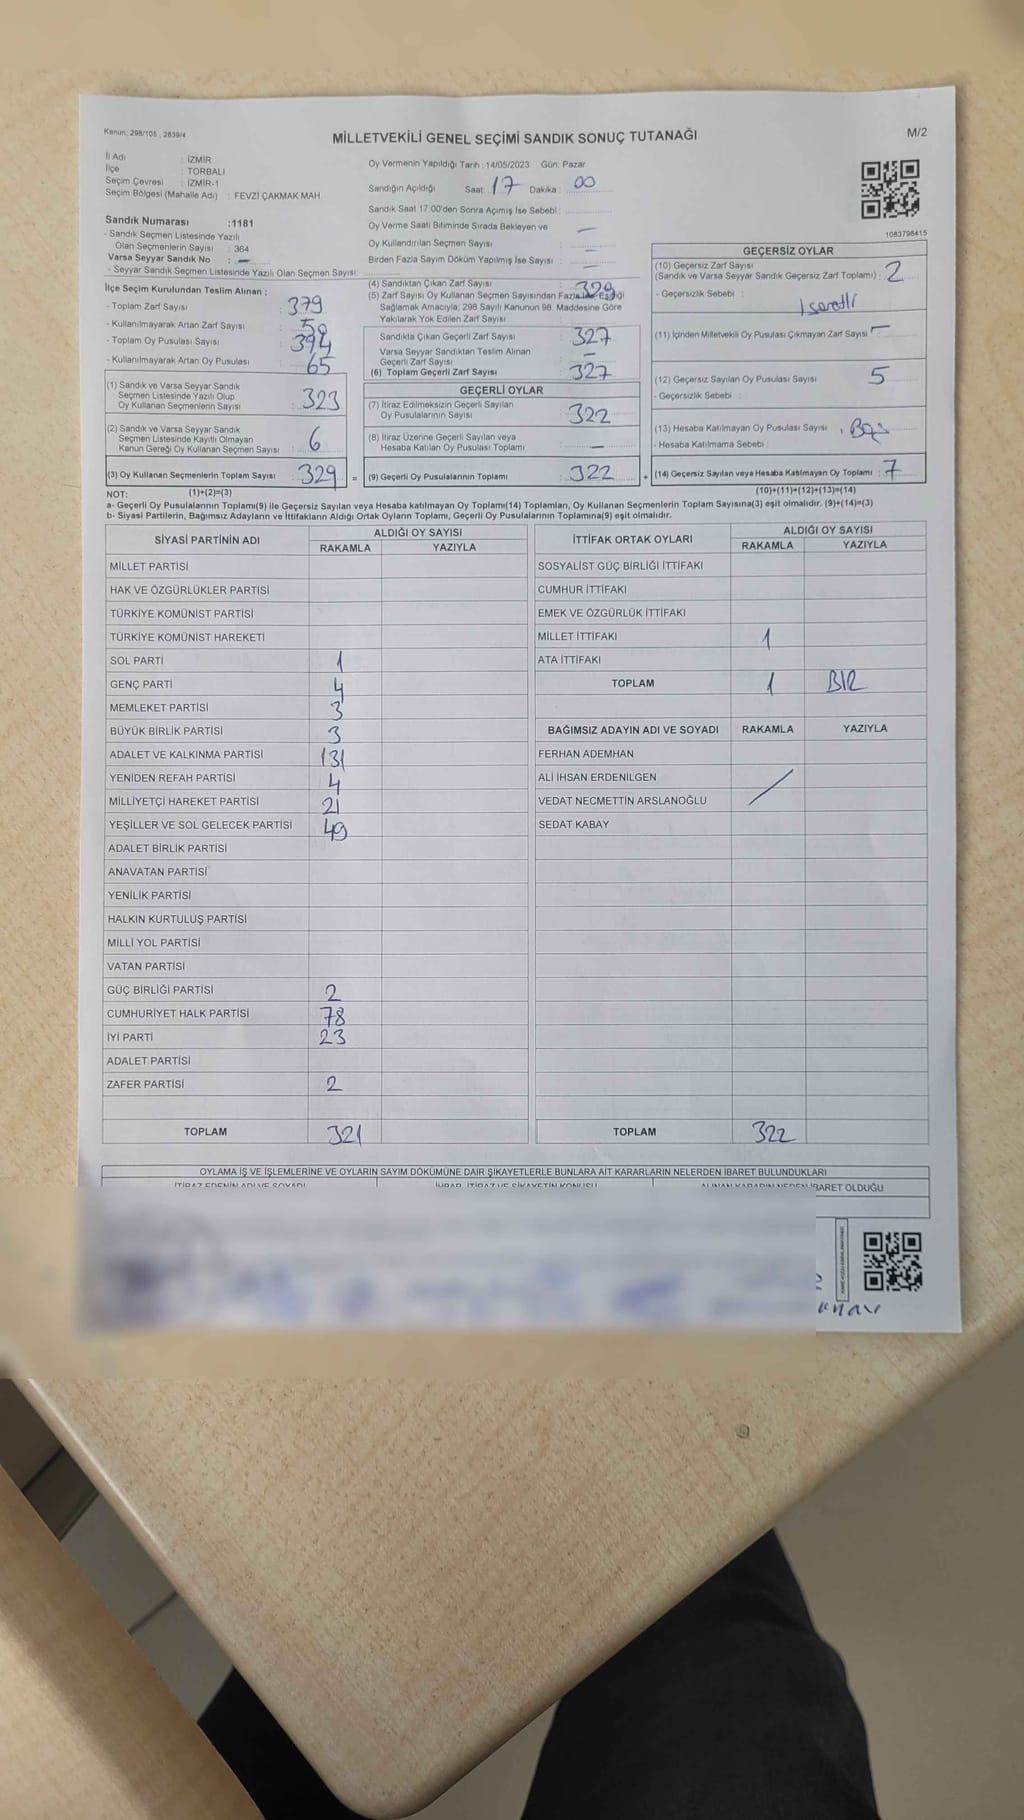 Kanun: 298/105 , 2839/4
MİLLETVEKİLİ GENEL SEÇİMİ SANDIK SONUÇ TUTANAĞI
M/2
İl Adı : İZMİR
İlçe : TORBALI
Seçim Çevresi : İZMİR-1
Seçim Bölgesi (Mahalle Adı) : FEVZİ ÇAKMAK MAH
Oy Vermenin Yapıldığı Tarih : 14/05/2023 Gün: Pazar
Sandığın Açıldığı Saat: 17 Dakika : 00
Sandık Saat 17:00'den Sonra Açılmış İse Sebebi :
Oy Verme Saati Bitiminde Sırada Bekleyen ve : —
Oy Kullandırılan Seçmen Sayısı : —
Birden Fazla Seyyar Döküm Yapılmış İse Sayısı : —
Sandık Numarası :1181
- Sandık Seçmen Listesinde Yazılı
Olan Seçmenlerin Sayısı : 364
Varsa Seyyar Sandık No : —
- Seyyar Sandık Seçmen Listesinde Yazılı Olan Seçmen Sayısı:
İlçe Seçim Kurulundan Teslim Alınan ;
- Toplam Zarf Sayısı : 379
- Kullanılmayarak Artan Zarf Sayısı :
- Toplam Oy Pusulası Sayısı : 394
- Kullanılmayarak Artan Oy Pusulası : 65
(1) Sandık ve Varsa Seyyar Sandık
Seçmen Listesinde Yazılı Olup
Oy Kullanan Seçmenlerin Sayısı : 323
(2) Sandık ve Varsa Seyyar Sandık
Seçmen Listesinde Kayıtlı Olmayan
Kanun Gereği Oy Kullanan Seçmen Sayısı : 6
(3) Oy Kullanan Seçmenlerin Toplam Sayısı : 329 =
(4) Sandıktan Çıkan Zarf Sayısı : 329
(5) Zarf Sayısı Oy Kullanan Seçmen Sayısından Fazla İse Eşitliği
Sağlamak Amacıyla; 298 Sayılı Kanunun 98. Maddesine Göre
Yakılarak Yok Edilen Zarf Sayısı :
Sandıkta Çıkan Geçerli Zarf Sayısı : 327
Varsa Seyyar Sandıktan Teslim Alınan
Geçerli Zarf Sayısı : —
(6) Toplam Geçerli Zarf Sayısı : 327
GEÇERLİ OYLAR
(7) İtiraz Edilmeksizin Geçerli Sayılan
Oy Pusulalarının Sayısı : 322
(8) İtiraz Üzerine Geçerli Sayılan veya
Hesaba Katılan Oy Pusulası Toplamı : —
(9) Geçerli Oy Pusulalarının Toplamı : 322 +
1063796415
GEÇERSİZ OYLAR
(10) Geçersiz Zarf Sayısı
(Sandık ve Varsa Seyyar Sandık Geçersiz Zarf Toplamı) : 2
- Geçersizlik Sebebi : İşaretli
(11) İçinden Milletvekili Oy Pusulası Çıkmayan Zarf Sayısı : —
(12) Geçersiz Sayılan Oy Pusulası Sayısı : 5
- Geçersizlik Sebebi :
(13) Hesaba Katılmayan Oy Pusulası Sayısı : Boş
- Hesaba Katılmama Sebebi :
(14) Geçersiz Sayılan veya Hesaba Katılmayan Oy Toplamı : 7
NOT: (1)+(2)=(3)
(10)+(11)+(12)+(13)=(14)
a- Geçerli Oy Pusulalarının Toplamı(9) ile Geçersiz Sayılan veya Hesaba katılmayan Oy Toplamı(14) Toplamları, Oy Kullanan Seçmenlerin Toplam Sayısına(3) eşit olmalıdır. (9)+(14)=(3)
b- Siyasi Partilerin, Bağımsız Adayların ve İttifakların Aldığı Ortak Oyların Toplamı, Geçerli Oy Pusulalarının Toplamına(9) eşit olmalıdır.
SİYASİ PARTİNİN ADI
ALDIĞI OY SAYISI
RAKAMLA YAZIYLA
MİLLET PARTİSİ
HAK VE ÖZGÜRLÜKLER PARTİSİ
TÜRKİYE KOMÜNİST PARTİSİ
TÜRKİYE KOMÜNİST HAREKETİ
SOL PARTİ 1
GENÇ PARTİ 4
MEMLEKET PARTİSİ 3
BÜYÜK BİRLİK PARTİSİ 3
ADALET VE KALKINMA PARTİSİ 131
YENİDEN REFAH PARTİSİ 4
MİLLİYETÇİ HAREKET PARTİSİ 21
YEŞİLLER VE SOL GELECEK PARTİSİ 49
ADALET BİRLİK PARTİSİ
ANAVATAN PARTİSİ
YENİLİK PARTİSİ
HALKIN KURTULUŞ PARTİSİ
MİLLİ YOL PARTİSİ
VATAN PARTİSİ
GÜÇ BİRLİĞİ PARTİSİ 2
CUMHURİYET HALK PARTİSİ 78
İYİ PARTİ 23
ADALET PARTİSİ
ZAFER PARTİSİ 2
TOPLAM 321
İTTİFAK ORTAK OYLARI
ALDIĞI OY SAYISI
RAKAMLA YAZIYLA
SOSYALİST GÜÇ BİRLİĞİ İTTİFAKI
CUMHUR İTTİFAKI
EMEK VE ÖZGÜRLÜK İTTİFAKI
MİLLET İTTİFAKI 1
ATA İTTİFAKI
TOPLAM 1 BİR
BAĞIMSIZ ADAYIN ADI VE SOYADI RAKAMLA YAZIYLA
FERHAN ADEMHAN
ALİ İHSAN ERDENİLGEN
VEDAT NECMETTİN ARSLANOĞLU
SEDAT KABAY
TOPLAM 322
OYLAMA İŞ VE İŞLEMLERİNE VE OYLARIN SAYIM DÖKÜMÜNE DAİR ŞİKAYETLERLE BUNLARA AİT KARARLARIN NELERDEN İBARET BULUNDUKLARI
İTİRAZ EDENİN ADI VE SOYADI İHBAR, İTİRAZ VE ŞİKAYETİN KONUSU ALINAN KARARIN NEDEN İBARET OLDUĞU